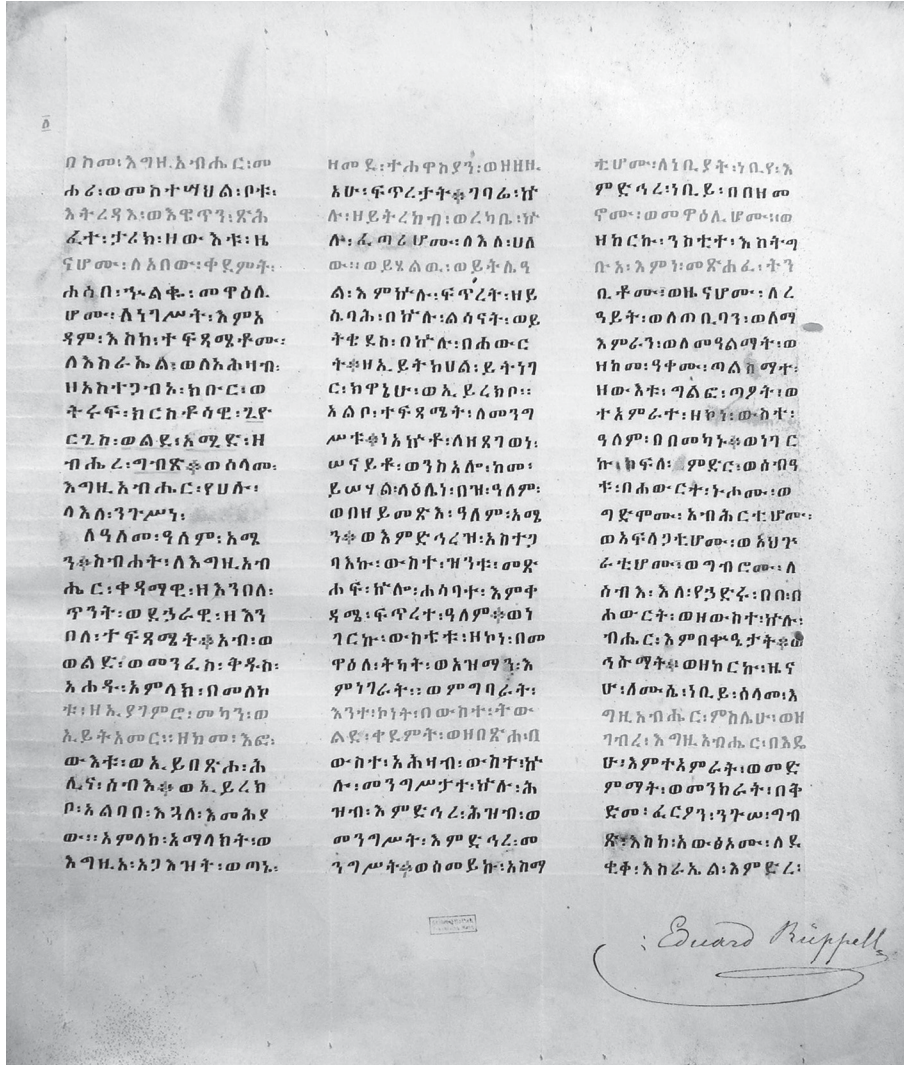 በከመ፡እግዚአብሔር፡መ
ሐሪ፡ወመስተሣህል፡ቦቱ፡
እትረዳእ፡ወእዌጥን፡ጽሕ
ፈተ፡ታሪክ፡ዘውእቱ፡ዜ
ናሆሙ፡ለአበው፡ቀደምት፡
ሐሳበ፡ኍልቁ፡መዋዕሊ
ሆሙ፡ለነገሥት፡እምአ
ዳም፡እስከ፡ተፍጻሜቶሙ፡
ለእስራኤል፡ወለአሕዛብ፡
ዘአስተጋብአ፡ክቡር፡ወ
ትሩፍ፡ክርስቶሳዊ፡ጊዮ
ርጊስ፡ወልደ፡አሚድ፡ዘ
ብሔረ፡ግብጽ፨ወሰላመ፡
እግዚአብሔር፡የሀሉ፡
ላእለ፡ንጉሥነ፡
ለዓለመ፡ዓለም፡አሜ
ን፨ስብሐት፡ለእግዚአብ
ሔር፡ቀዳማዊ፡ዘእንበለ፡
ጥንት፡ወደኃራዊ፡ዘእን
በለ፡ተፍጻሜት፨አብ፡ወ
ወልድ፡ወመንፈስ፡ቅዱስ፡
አሐዱ፡አምላክ፡በመለኮ
ቱ፡ዘኢያገምሮ፡መካን፡ወ
ኢይትአመር፡ዘከመ፡እፎ፡
ውእቱ፡ወኢይበጽሖ፡ሕ
ሊና፡ሰብእ፨ወኢይረክ
ቦ፡አልባበ፡እጓለ፡እመሕያ
ው፡፡አምላከ፡አማልክት፡ወ
እግዚአ፡አጋእዝት፡ወጣኒ፡
ዘመደ፡ተሐዋስያን፡ወዘዘዚ
አሁ፡ፍጥረታት፨ገባሬ፡ኵ
ሉ፡ዘይትረከብ፡ወረካቤ፡ኵ
ሎ፡ፈጣሪሆሙ፡ለእለ፡ሀለ
ው፡፡ወይሄልዉ፡ወይትሌዓ
ል፡እምኵሉ፡ፍጥረት፡ዘይ
ሴባሕ፡በኵሉ፡ልሳናት፡ወይ
ትቄደስ፡በኵሉ፡በሐውር
ት፨ዘኢይትከሀል፡ይትነገ
ር፡ክዋኔሁ፡ወኢይረክቦ፡፡
አልቦ፡ተፍጻሜት፡ለመንግ
ሥቱ፨ነአኵቶ፡ለዘጸገወነ፡
ሠናይቶ፡ወንስእሎ፡ከመ፡
ይሠሃል፡ላዕሌነ፡በዝ፡ዓለም፡
ወበዘይመጽእ፡ዓለም፡አሜ
ን፨ወእምድኅረዝ፡አስተጋ
ባእኩ፡ውስተ፡ዝንቱ፡መጽ
ሐፍ፡ኵሎ፡ሐሳባተ፡እምቀ
ዳሜ፡ፍጥረተ፡ዓለም፨ወነ
ገርኩ፡ውስቴቱ፡ዘኮነ፡በመ
ዋዕለ፡ትካት፡ወአዝማን፡እ
ምነገራት፡፡ወምግባራት፡
እንተ፡ኮነት፡በውስተ፡ትው
ልደ፡ቀደምት፡ወዘበጽሐ፡በ
ውስተ፡አሕዛብ፡ውስተ፡ኵ
ሉ፡መንግሥታተ፡ኵሉ፡ሕ
ዝብ፡እምድኅረ፡ሕዝብ፡ወ
መንግሥት፡እምድኅረ፡መ
ንግሥት፨ወሰመይኩ፡አስማ
ቲሆሙ፡ለነቢያት፡ነቢየ፡እ
ምድኅረ፡ነቢይ፡በበዘመ
ኖሙ፡ወመዋዕሊሆሙ፡፡ወ
ዘከርኩ፡ንስቲተ፡እስትግ
ቡአ፡እምነ፡መጽሐፈ፡ትን
ቢቶሙ፡ወዜናሆሙ፡ለረ
ዓይት፡ወለጠቢባን፡ወለማ
እምራን፡ወለመዓልማት፡ወ
ዘከመ፡ዓቀሙ፡ጣልስማተ፡
ዘውእቱ፡ግልፎ፡ጣዖት፡ወ
ተአምራተ፡ዘኮነ፡ውስተ፡
ዓለም፡በበመካኑ፨ወነገር
ኩ፡ክፍለ፡ምድር፡ወሰብዓ
ቱ፡በሐውርት፡ኑሖሙ፡ወ
ግድሞሙ፡አብሕርቲሆሙ፡
ወአፍላጋቲሆሙ፡ወአህጉ
ራቲሆሙ፡ወግብሮሙ፡ለ
ሰብእ፡እለ፡የኃድሩ፡በበ፡በ
ሐውርት፡ወዘውስተ፡ኵሉ፡
ብሔር፡እምበቍዔታት፨ወ
ኅሡማት፨ወዘከርኩ፡ዜና
ሁ፡ለሙሴ፡ነቢይ፡ሰላመ፡እ
ግዚአብሔር፡ምስሌሁ፡ወዘ
ገብረ፡እግዚአብሔር፡በእዴ
ሁ፡እምተአምራት፡ወመድ
ምማት፡ወመንክራት፡በቅ
ድመ፡ፈርዖን፡ንጉሠ፡ግብ
ጽ፡እስከ፡አውፅአሙ፡ለደ
ቂቀ፡እስራኤል፡እምድረ፡
Eduard Rüppell